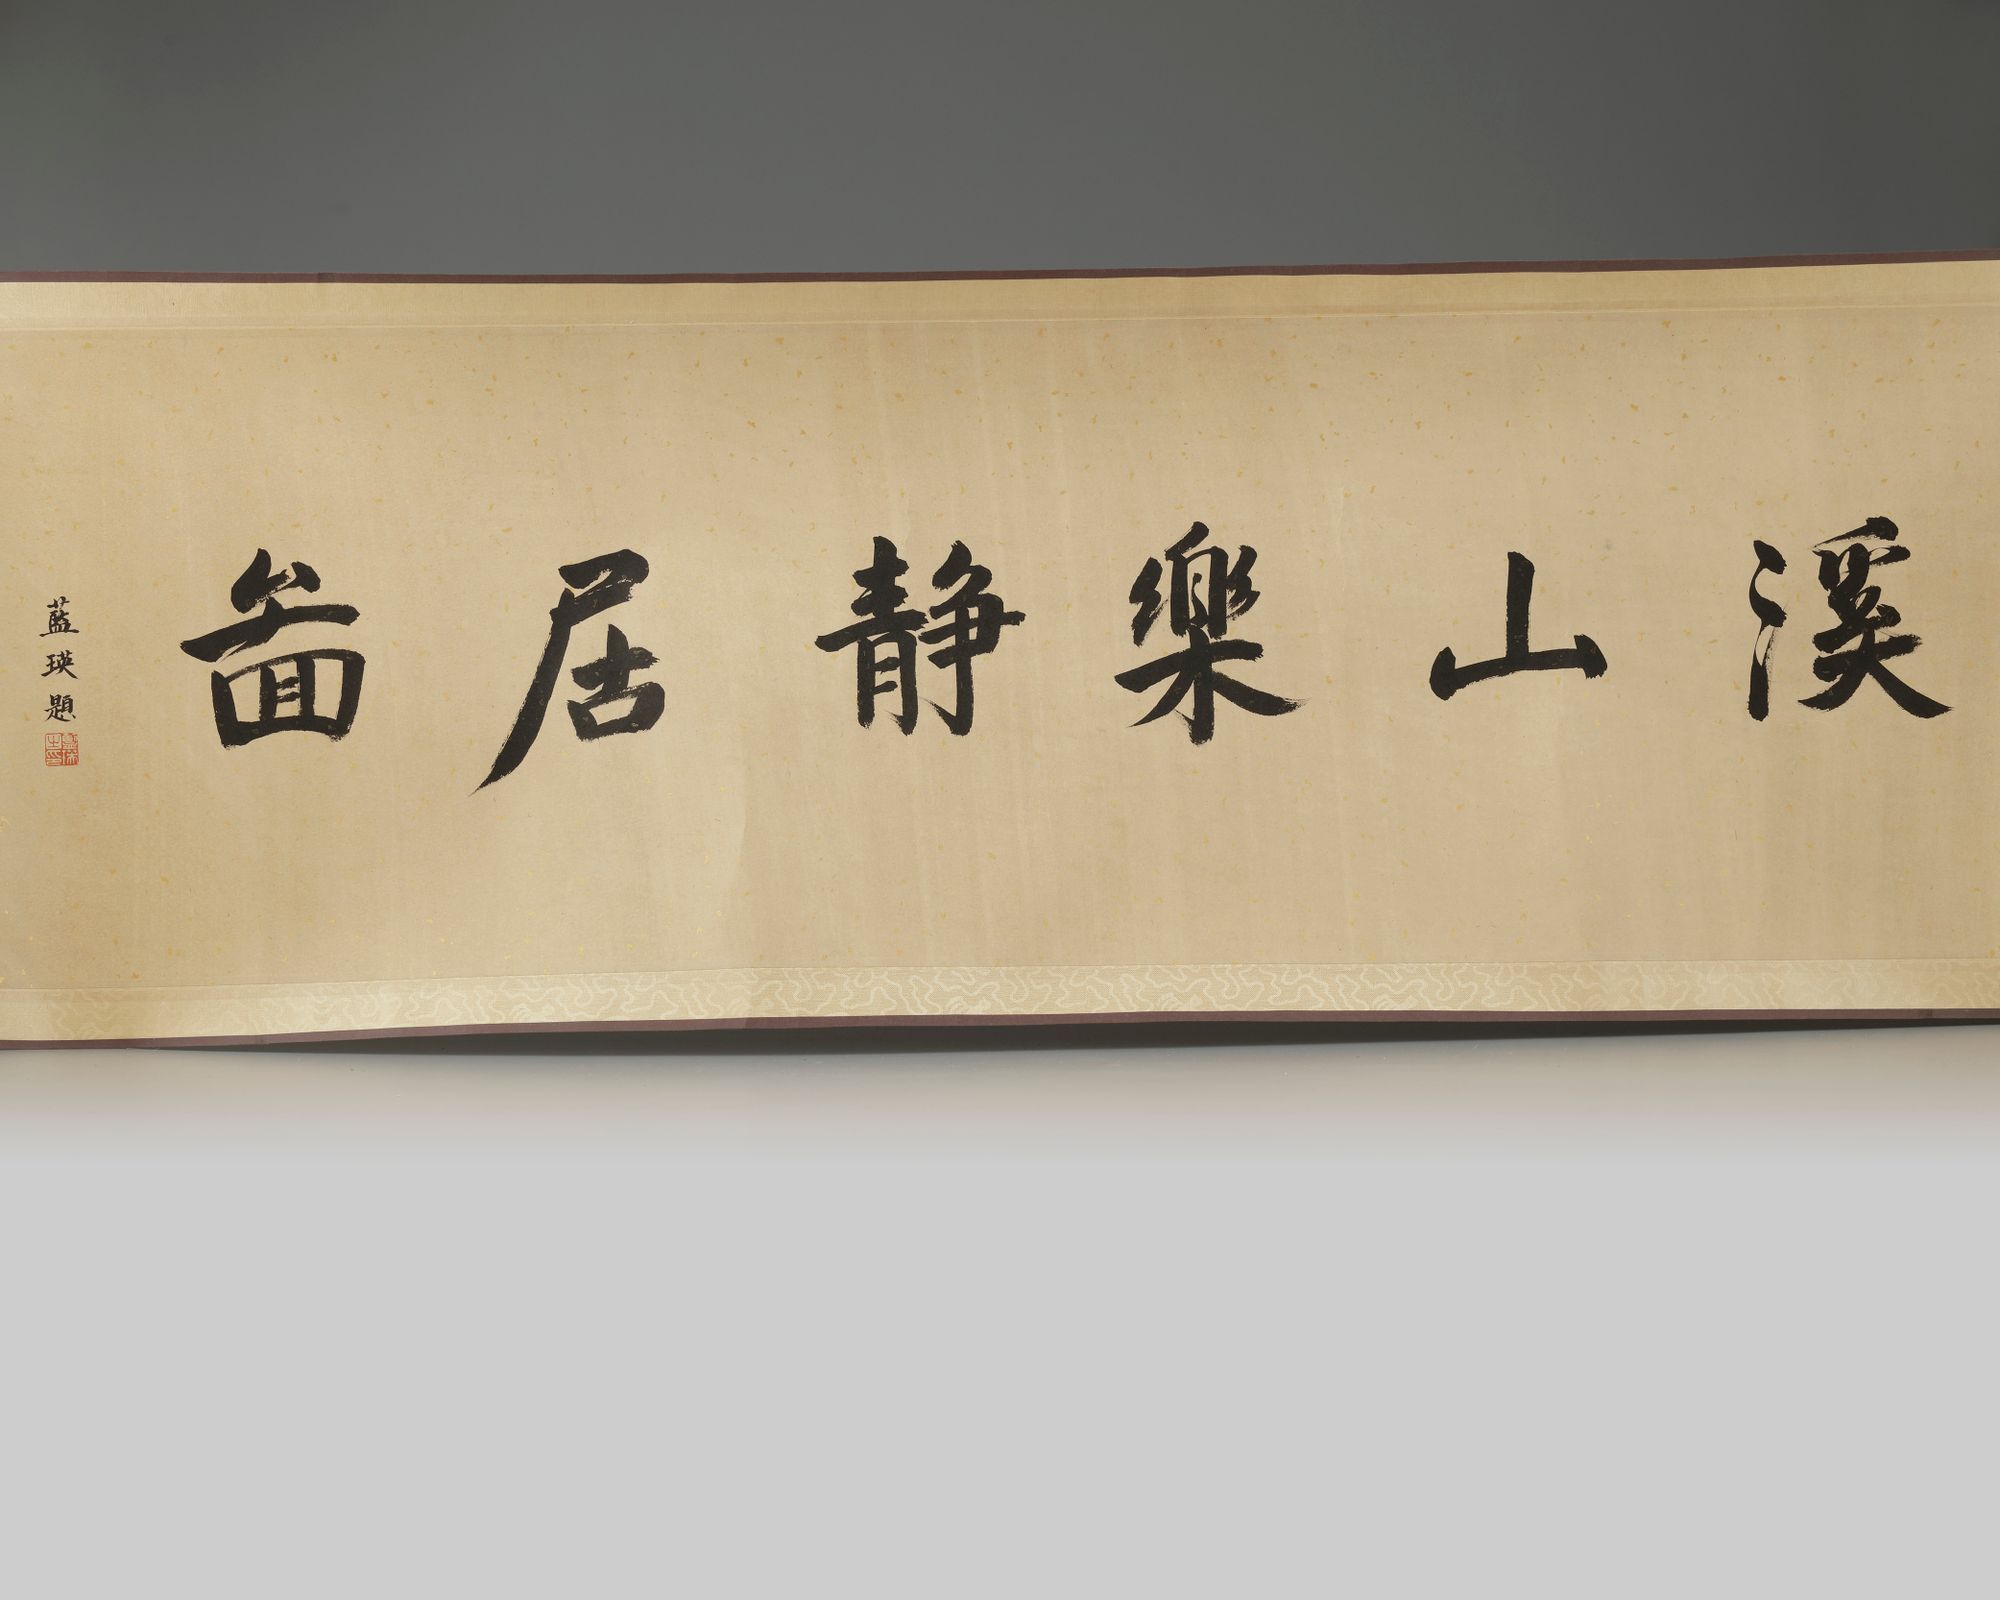 溪山樂静居啚
藍瑛題